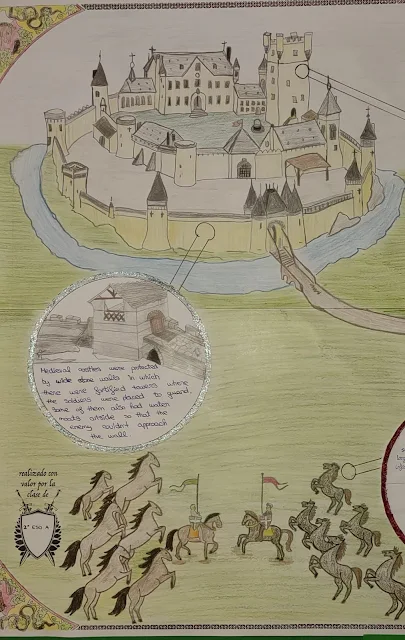 Medieval castles were protected
by wide stone walls in which
there were fortified towers where
the soldiers were placed to guard.
Some of them also had water
moats outside so that the
enemy couldn't approach
the wall.
realizado con
valor por la
clase de
2º ESO A